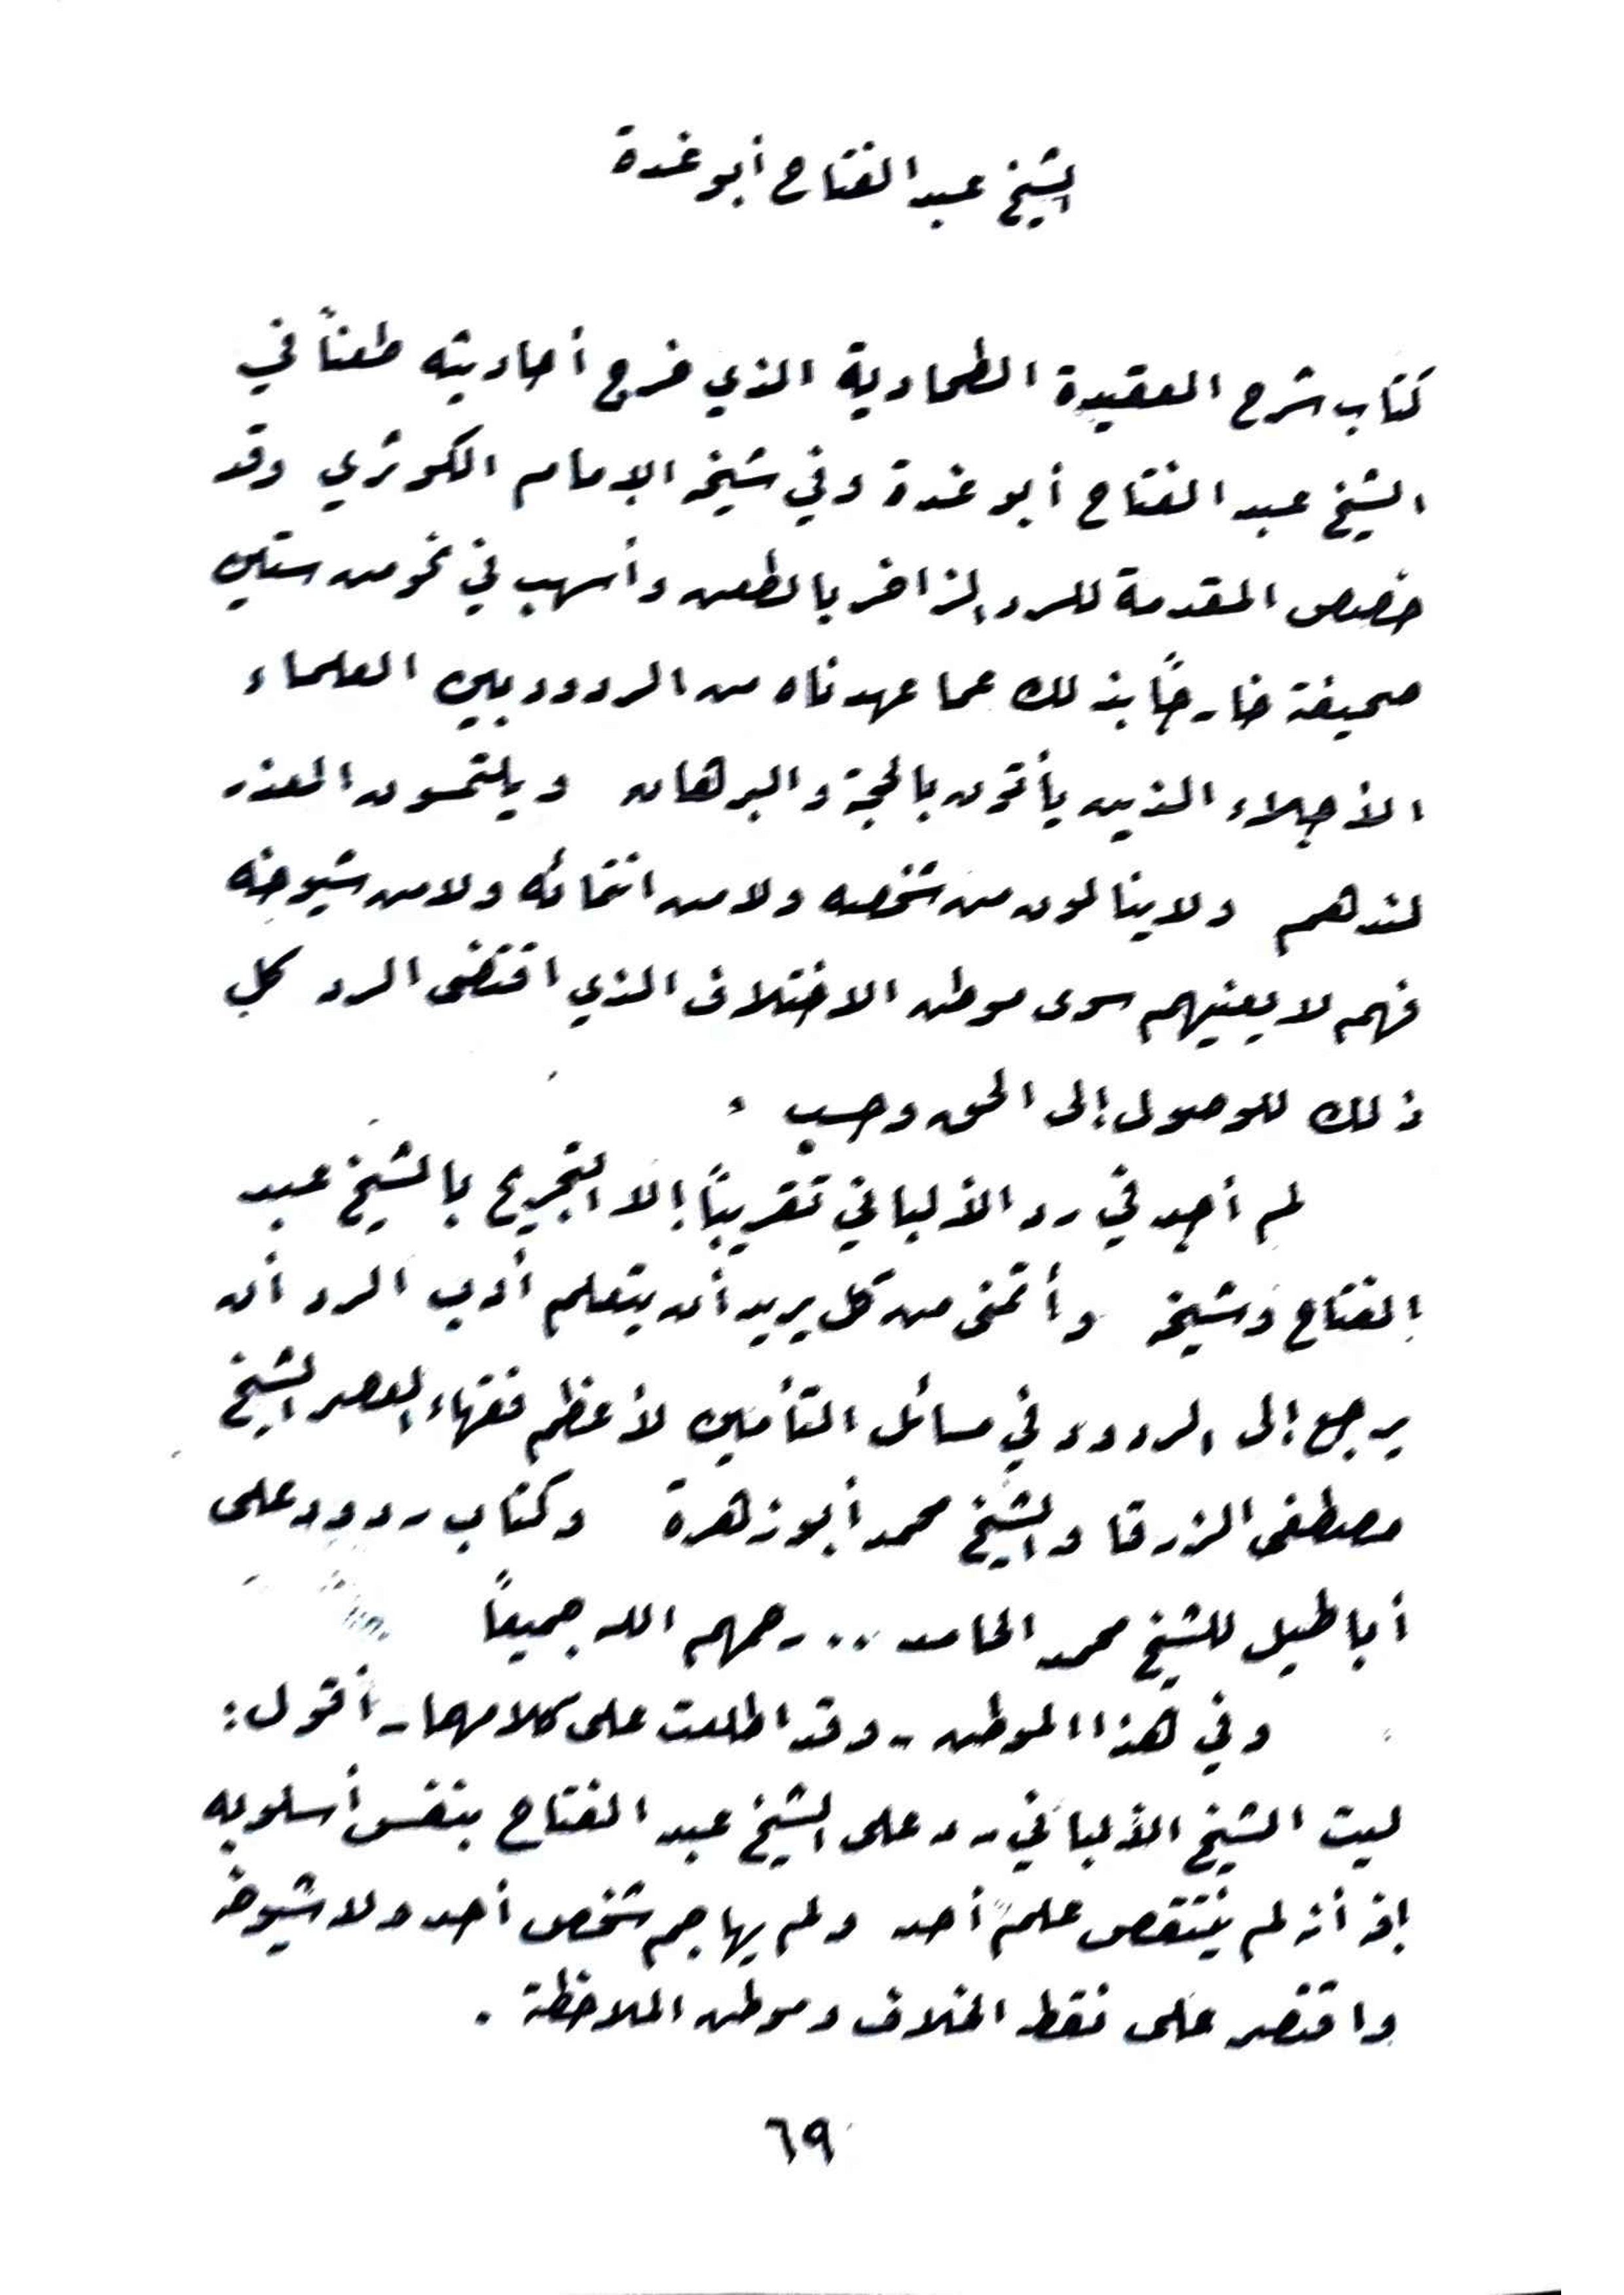 الشيخ عبد الفتاح أبو غدة
كتاب شرح العقيدة الطحاوية الذي خرج أحاديثه طعناً في
الشيخ عبد الفتاح أبو غدة وفي شيخه الإمام الكوثري وقد
خصص المقدمة للرد الزاخر بالطعن وأسهب في نحو من ستين
صحيفة خارجاً بذلك عما عهدناه من الردود بين العلماء
الأجلاء الذين يأتون بالحجة والبرهان ويلتمسون العذر
لندهم ولا ينالون من شخصه ولا من انتمائه ولا من شيوخه
فهم لا يعنيهم سوى موطن الاختلاف الذي اقتضى الرد كل
ذلك للوصول إلى الحق وحسب .
لم أجد في رد الألباني تقريباً إلا التجريح بالشيخ عبد
الفتاح وشيخه وأتمنى من كل يريد أن يتعلم أدب الرد أن
يرجع إلى الردود في مسائل التأمين لأعظم فقهاء العصر الشيخ
مصطفى الزرقا والشيخ محمد أبو زهرة وكتاب ردود على
أباطيل للشيخ محمد الحامد .. رحمهم الله جميعاً
وفي هذا الموطن - وقد اطلعت على كلامهما - أقول :
ليت الشيخ الألباني رد على الشيخ عبد الفتاح بنفس أسلوبه
إذ أنه لم ينتقص علم أحد ولم يهاجم شخص أحد ولا شيوخه
واقتصر على نقط الخلاف وموطن الملاحظة .
٦٩